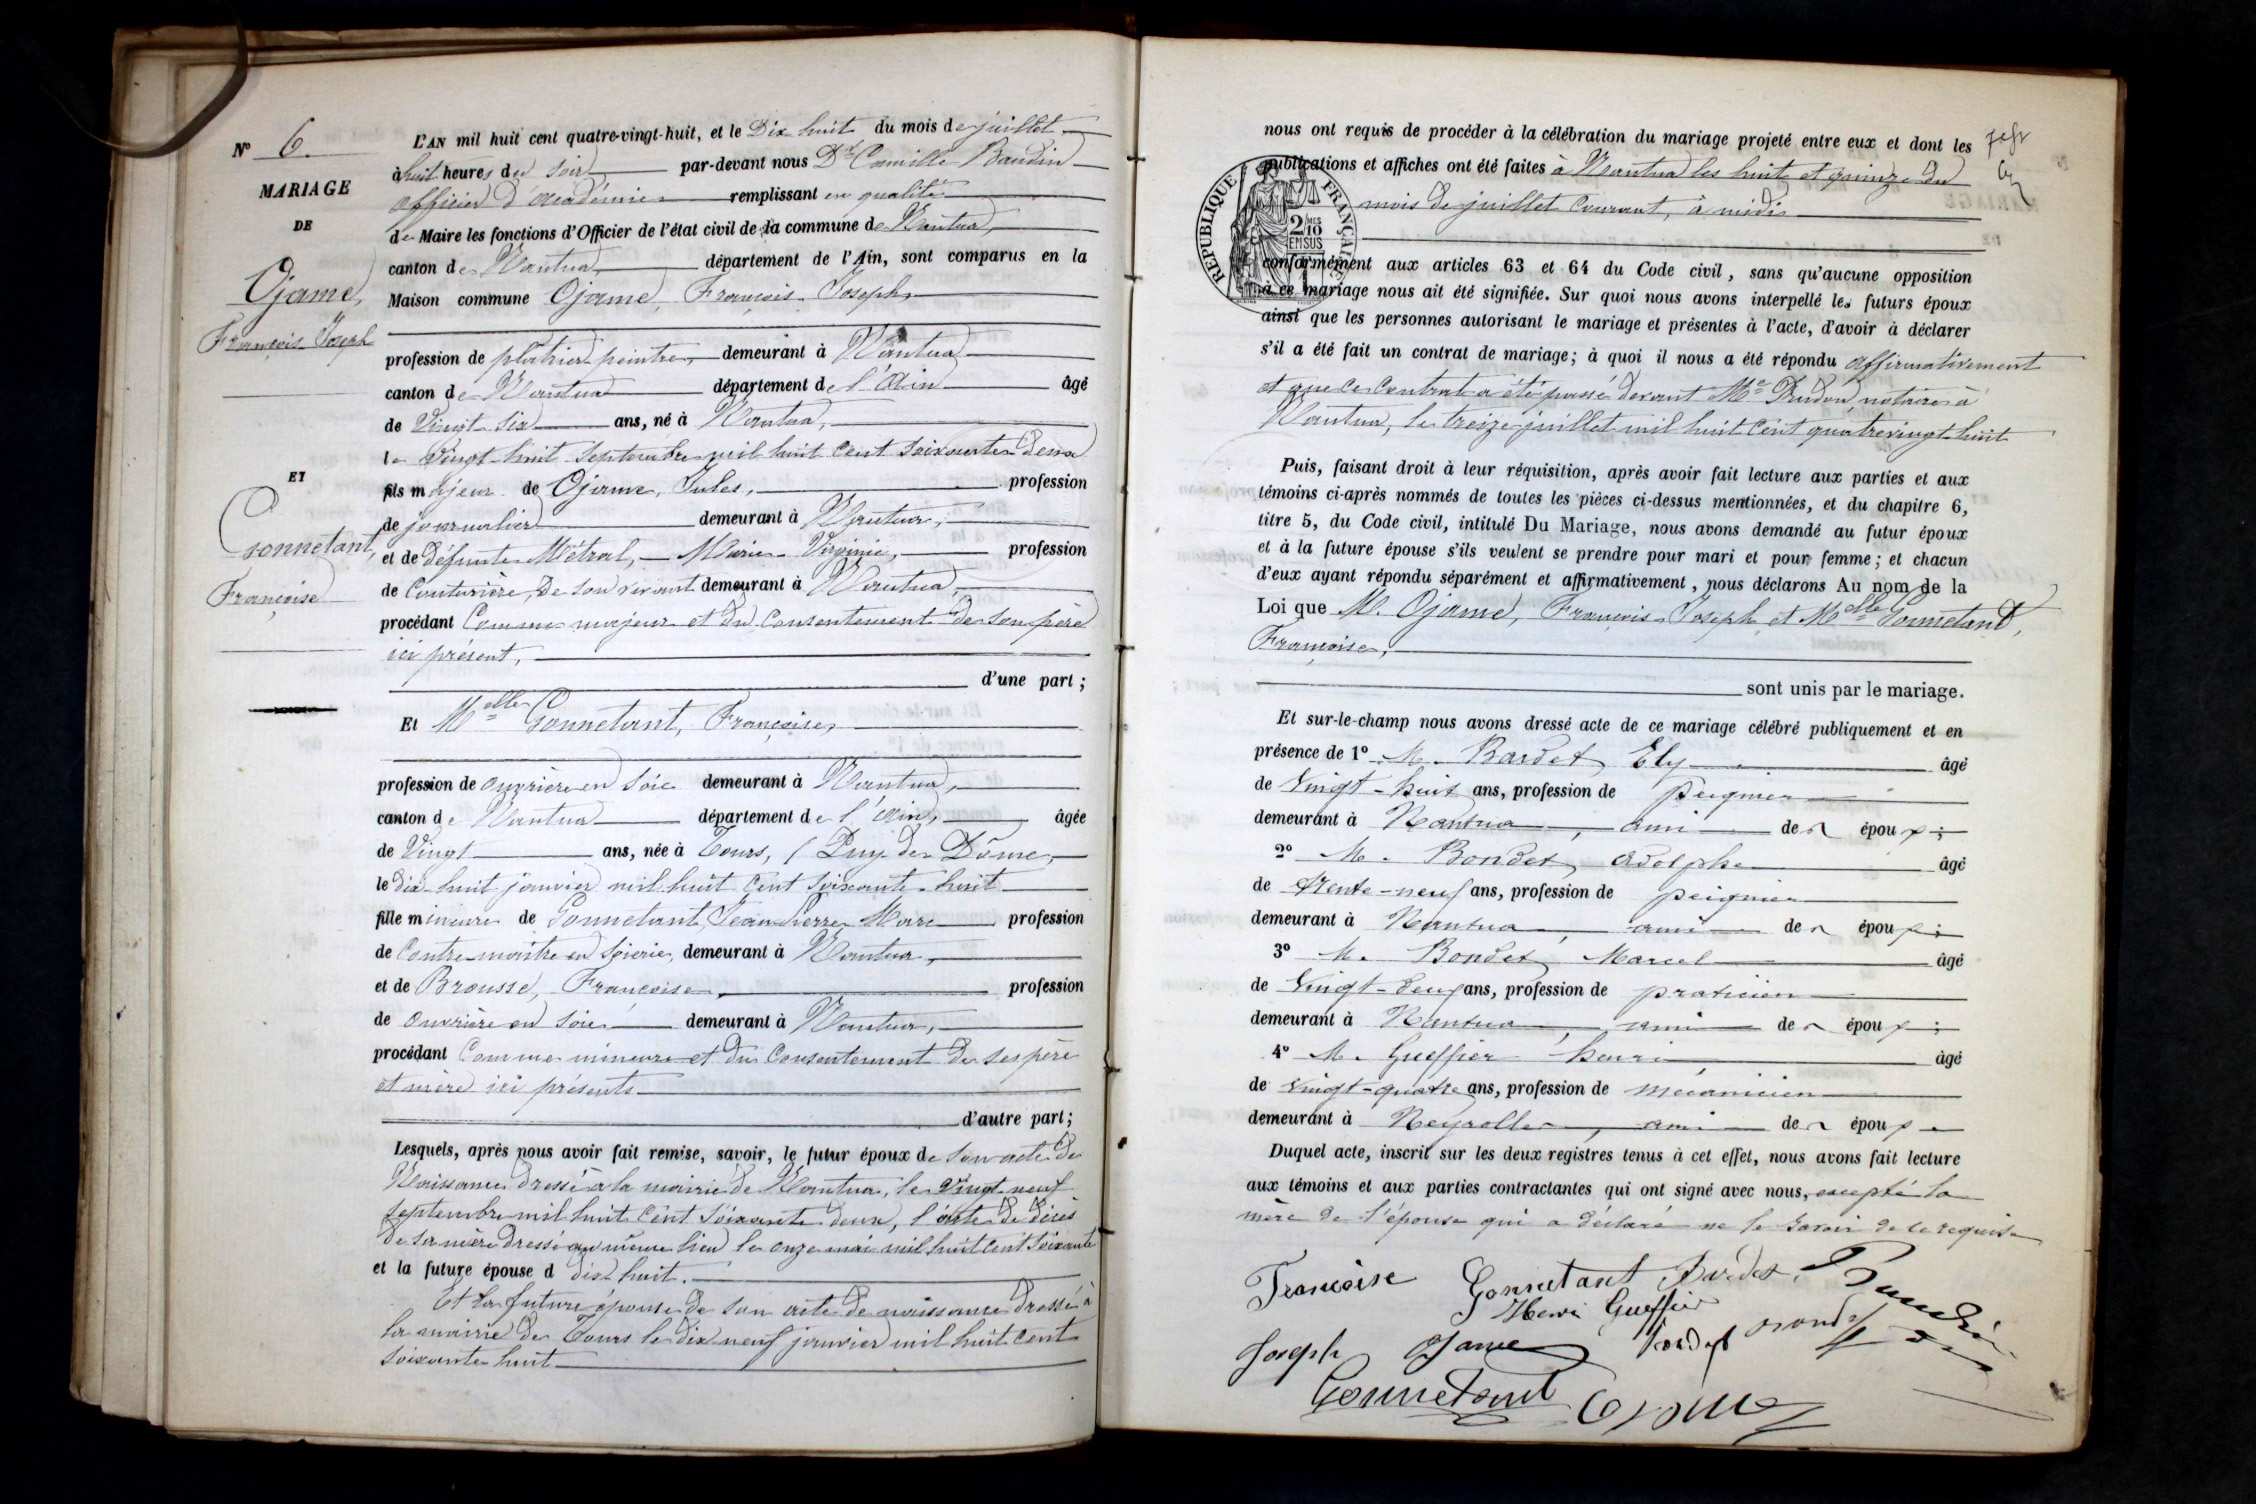 N° 6.
MARIAGE
DE
Ojame,
François Joseph
ET
Gonnetant,
Françoise
L'AN mil huit cent quatre-vingt-huit, et le Dix huit du mois de juillet
à huit heures du soir par-devant nous Dr Camille Baudin
officier d'académie remplissant en qualité
de Maire les fonctions d'Officier de l'état civil de la commune de Nantua,
canton de Nantua département de l'Ain, sont comparus en la
Maison commune Ojame, François Joseph,
profession de plâtrier peintre, demeurant à Nantua
canton de Nantua département de l'Ain âgé
de Vingt six ans, né à Nantua,
le Vingt-huit Septembre mil huit cent soixante deux
fils majeur de Ojame, Jules, profession
de journalier demeurant à Nantua,
et de défunte Métral, Marie Virginie, profession
de couturière, de son vivant demeurant à Nantua,
procédant comme majeur et du consentement de son père
ici présent,
d'une part;
Et Melle Gonnetant, Françoise,
profession de ouvrière en soie demeurant à Nantua,
canton de Nantua département de l'Ain, âgée
de Vingt ans, née à Tours, (Puy de Dôme,
le dix-huit janvier mil huit cent soixante-huit
fille mineure de Gonnetant, Jean Pierre Marc profession
de Contre-maître en soierie, demeurant à Nantua,
et de Brousse, Françoise, profession
de ouvrière en soie demeurant à Nantua,
procédant comme mineure et du consentement de ses père
et mère ici présents
d'autre part;
Lesquels, après nous avoir fait remise, savoir, le futur époux de son acte de
Naissance dressé à la mairie de Nantua, le vingt neuf
septembre mil huit cent soixante deux, l'acte de décès
de sa mère dressé au même lieu le onze mai mil huit cent soixante
et la future épouse d dix huit.
Et la future épouse de son acte de naissance dressé à
la mairie de Tours le dix neuf janvier mil huit cent
soixante huit
nous ont requis de procéder à la célébration du mariage projeté entre eux et dont les
publications et affiches ont été faites à Nantua les huit et quinze du
mois de juillet courant, à midi
RÉPUBLIQUE FRANÇAISE
2/10 MES EN SUS
conformément aux articles 63 et 64 du Code civil, sans qu'aucune opposition
à ce mariage nous ait été signifiée. Sur quoi nous avons interpellé les futurs époux
ainsi que les personnes autorisant le mariage et présentes à l'acte, d'avoir à déclarer
s'il a été fait un contrat de mariage; à quoi il nous a été répondu affirmativement
et que ce contrat a été passé devant Me Prudon, notaire à
Nantua, le treize juillet mil huit cent quatre vingt huit
Puis, faisant droit à leur réquisition, après avoir fait lecture aux parties et aux
témoins ci-après nommés de toutes les pièces ci-dessus mentionnées, et du chapitre 6,
titre 5, du Code civil, intitulé Du Mariage, nous avons demandé au futur époux
et à la future épouse s'ils veulent se prendre pour mari et pour femme; et chacun
d'eux ayant répondu séparément et affirmativement, nous déclarons Au nom de la
Loi que M. Ojame, François Joseph et Melle Gonnetant,
Françoise,
sont unis par le mariage.
Et sur-le-champ nous avons dressé acte de ce mariage célébré publiquement et en
présence de 1° M. Bardet Ely âgé
de Vingt-huit ans, profession de peignier
demeurant à Nantua, ami de époux;
2° M. Bondet, Adolphe âgé
de trente-neuf ans, profession de peignier
demeurant à Nantua, ami de époux;
3° M. Bondet, Marcel âgé
de Vingt-deux ans, profession de praticien
demeurant à Nantua, ami de époux;
4° M. Gueffier henri âgé
de vingt-quatre ans, profession de mécanicien
demeurant à Neyrolles, ami de époux
Duquel acte, inscrit sur les deux registres tenus à cet effet, nous avons fait lecture
aux témoins et aux parties contractantes qui ont signé avec nous, excepté la
mère de l'épouse qui a déclaré ne le savoir de ce requise
Françoise Gonnetant Bardet. Baudin
Henri Gueffier
Joseph Ojame Bondet
Gonnetant Ojame